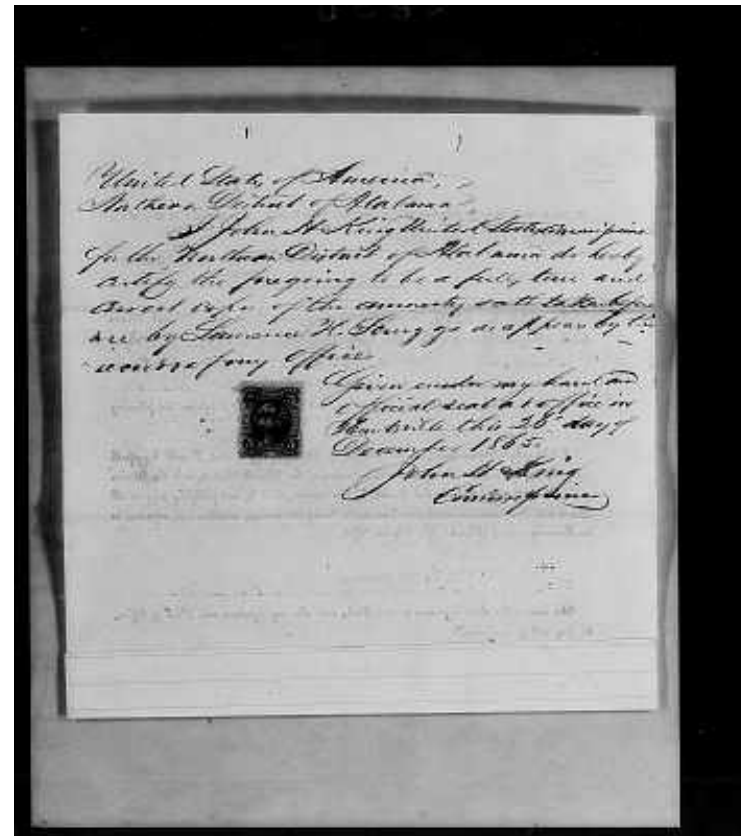 United States of America,
Northern District of Alabama
I John H King United States Commissioner
for the Northern District of Alabama do hereby
certify the foregoing to be a full, true and
correct copy of the amnesty oath taken before
me by Lawrence H. Scruggs as appears by the
records of my office
Given under my hand and
official seal at office in
Huntsville this 26 day of
December 1865.
John H King
Commissioner